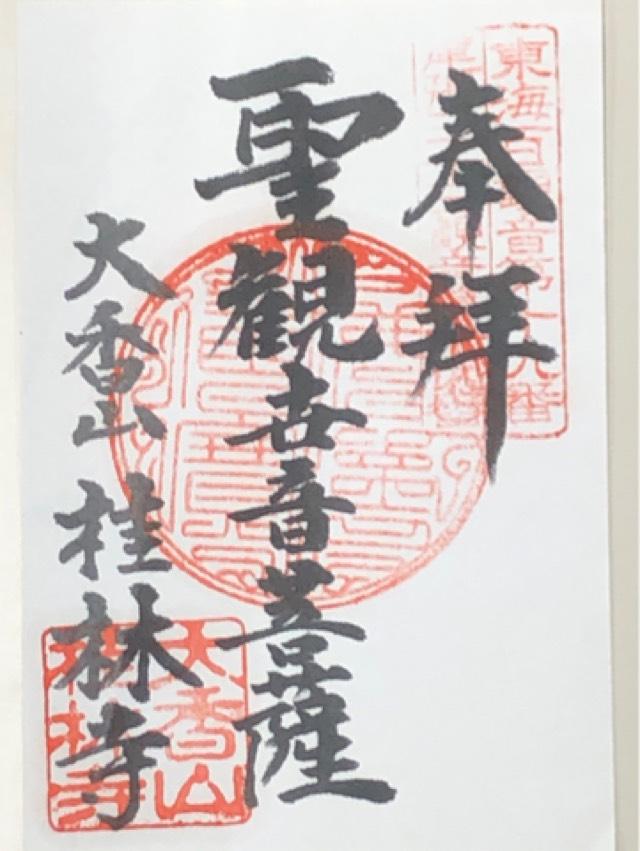 東海百観音第
奉拝
聖観世音菩薩
大香山 桂林寺
大香山
桂林寺